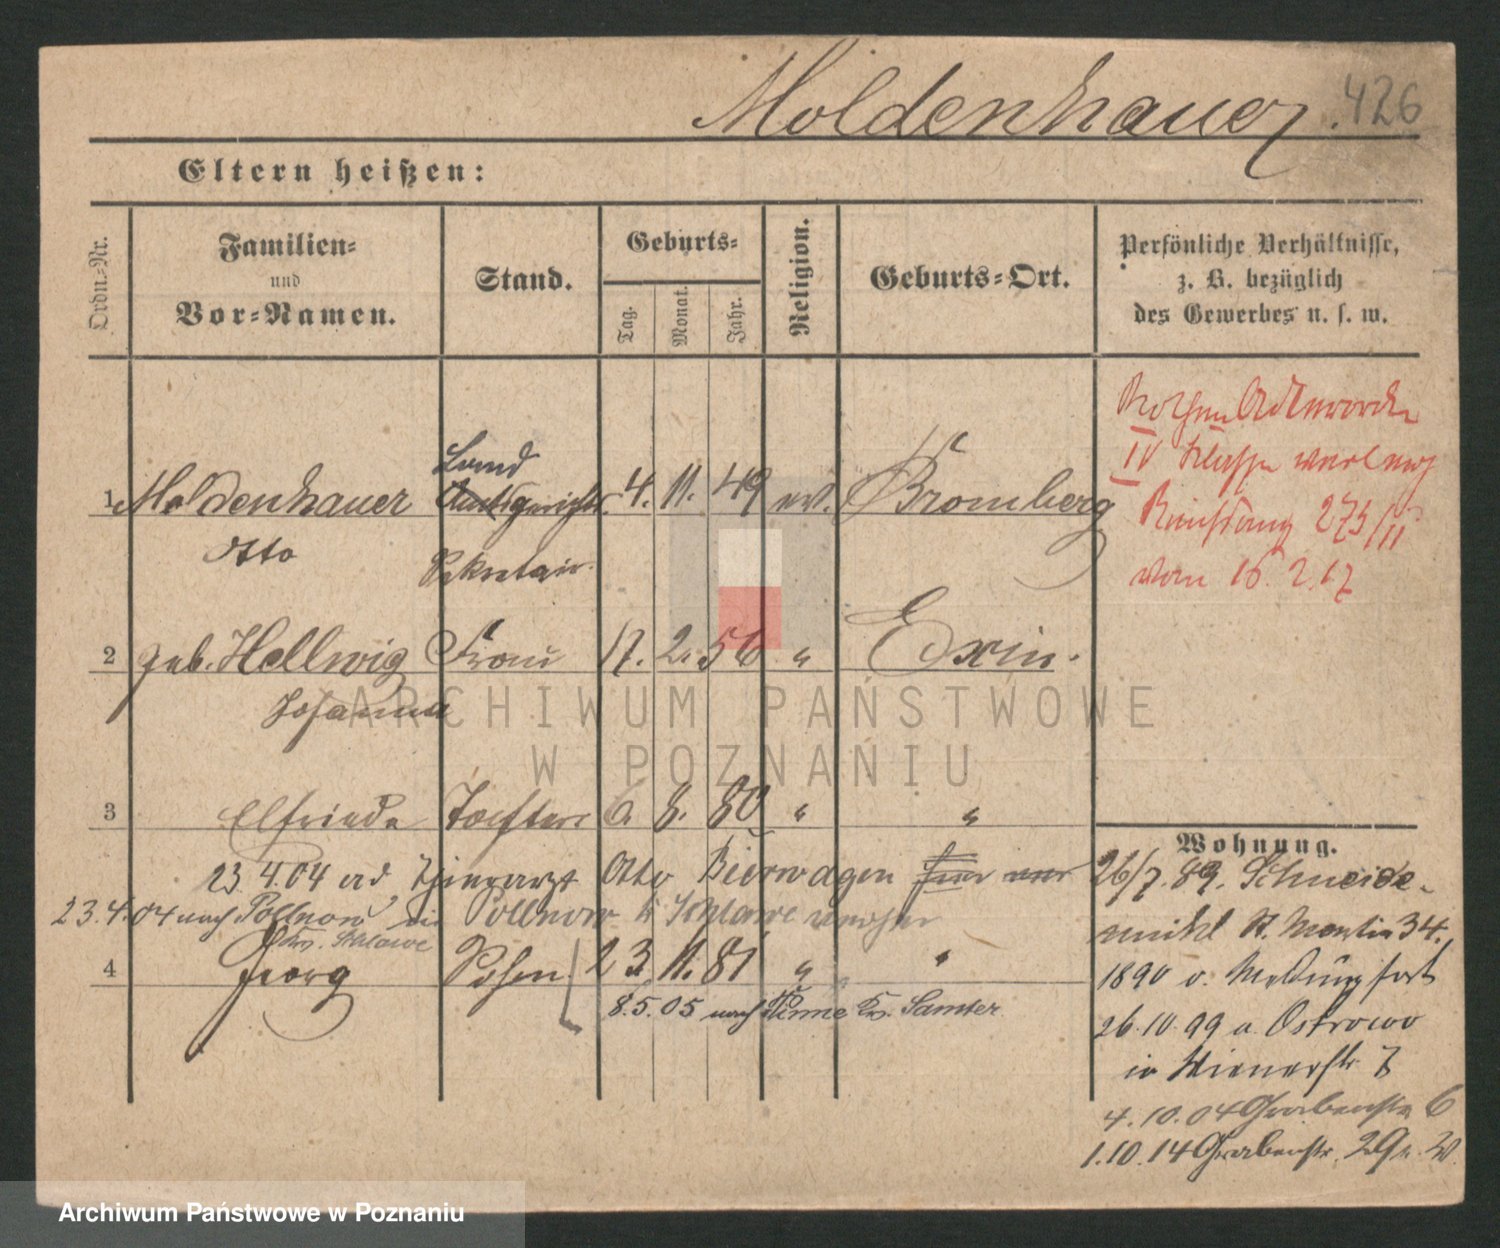 Moldenhauer. 426
Eltern heißen:
Ordn.-Nr.
Familien-
und
Vor-Namen.
Stand.
Geburts-
Tag.
Monat.
Jahr.
Religion.
Geburts-Ort.
Persönliche Verhältnisse,
z. B. bezüglich
des Gewerbes u. s. w.
Rothen Adlerorden
IV Klasse
275/II
vom 16. 2. 17
Land
1 Moldenhauer Amtsgerichts. 4. 11. 49 ev. Bromberg
Otto Sekretair.
2 geb. Hellwig Frau 17. 2. 56 " Exin.
Johanna
ARCHIWUM PAŃSTWOWE
W POZNANIU
3 Elfriede Tochter 6. 8. 80 " "
Wohnung.
23.4.04 Otto Bierwagen
23.4.04 nach Pollnow Pollnow Schlawe
Krs. Schlawe
4 Georg Sohn 23. 11. 81 " "
8.5.05 nach Pinne Krs. Samter
26/7. 89. Schneide-
mühl St. Martin 34.
1890 v. Meldung fort
26.10.99 a. Ostrowo
in Wienerstr. 7
4.10.04 Grabenstr. 6
1.10.14 Grabenstr. 29
Archiwum Państwowe w Poznaniu